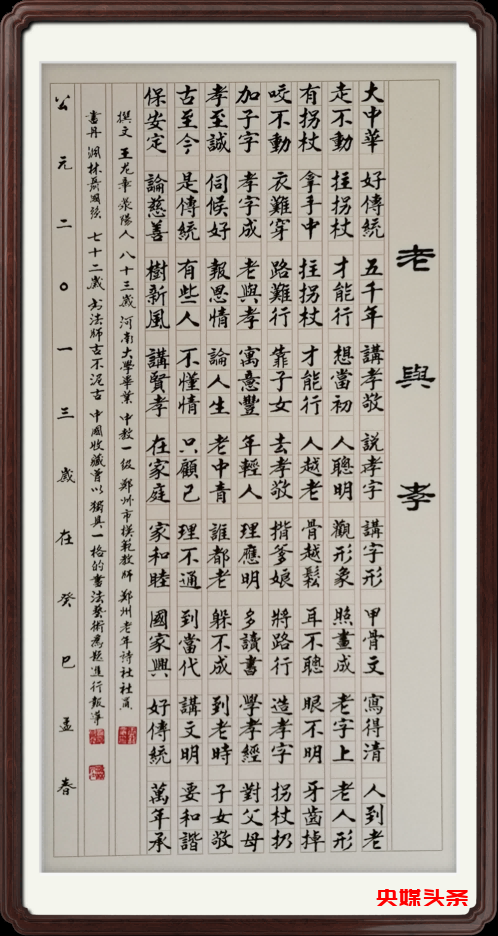 老與孝
大中華 好傳統 五千年 講孝敬 說孝字 講字形 甲骨文 寫得清 人到老
走不動 拄拐杖 才能行 想當初 人聰明 觀形象 照畫成 老字上 老人形
有拐杖 拿手中 拄拐杖 才能行 人越老 骨越鬆 耳不聰 眼不明 牙齒掉
咬不動 衣難穿 路難行 靠子女 去孝敬 揹爹娘 將路行 造孝字 拐杖扔
加子字 孝字成 老與孝 寓意豐 年輕人 理應明 多讀書 學孝經 對父母
孝至誠 伺候好 報恩情 論人生 老中青 誰都老 躲不成 到老時 子女敬
古至今 是傳統 有些人 不懂情 只顧己 理不通 到當代 講文明 要和諧
保安定 論慈善 樹新風 講賢孝 在家庭 家和睦 國家興 好傳統 萬年承
撰文 王龙華 滎陽人 八十三歲 河南大學畢業 中教一级 鄭州市模範教師 鄭州老年詩社社員
書丹 七十二歲 书法師古不泥古 中國收藏曾以獨具一格的書法藝術為題進行報導
公元二〇一三歲在癸巳孟春
央媒头条